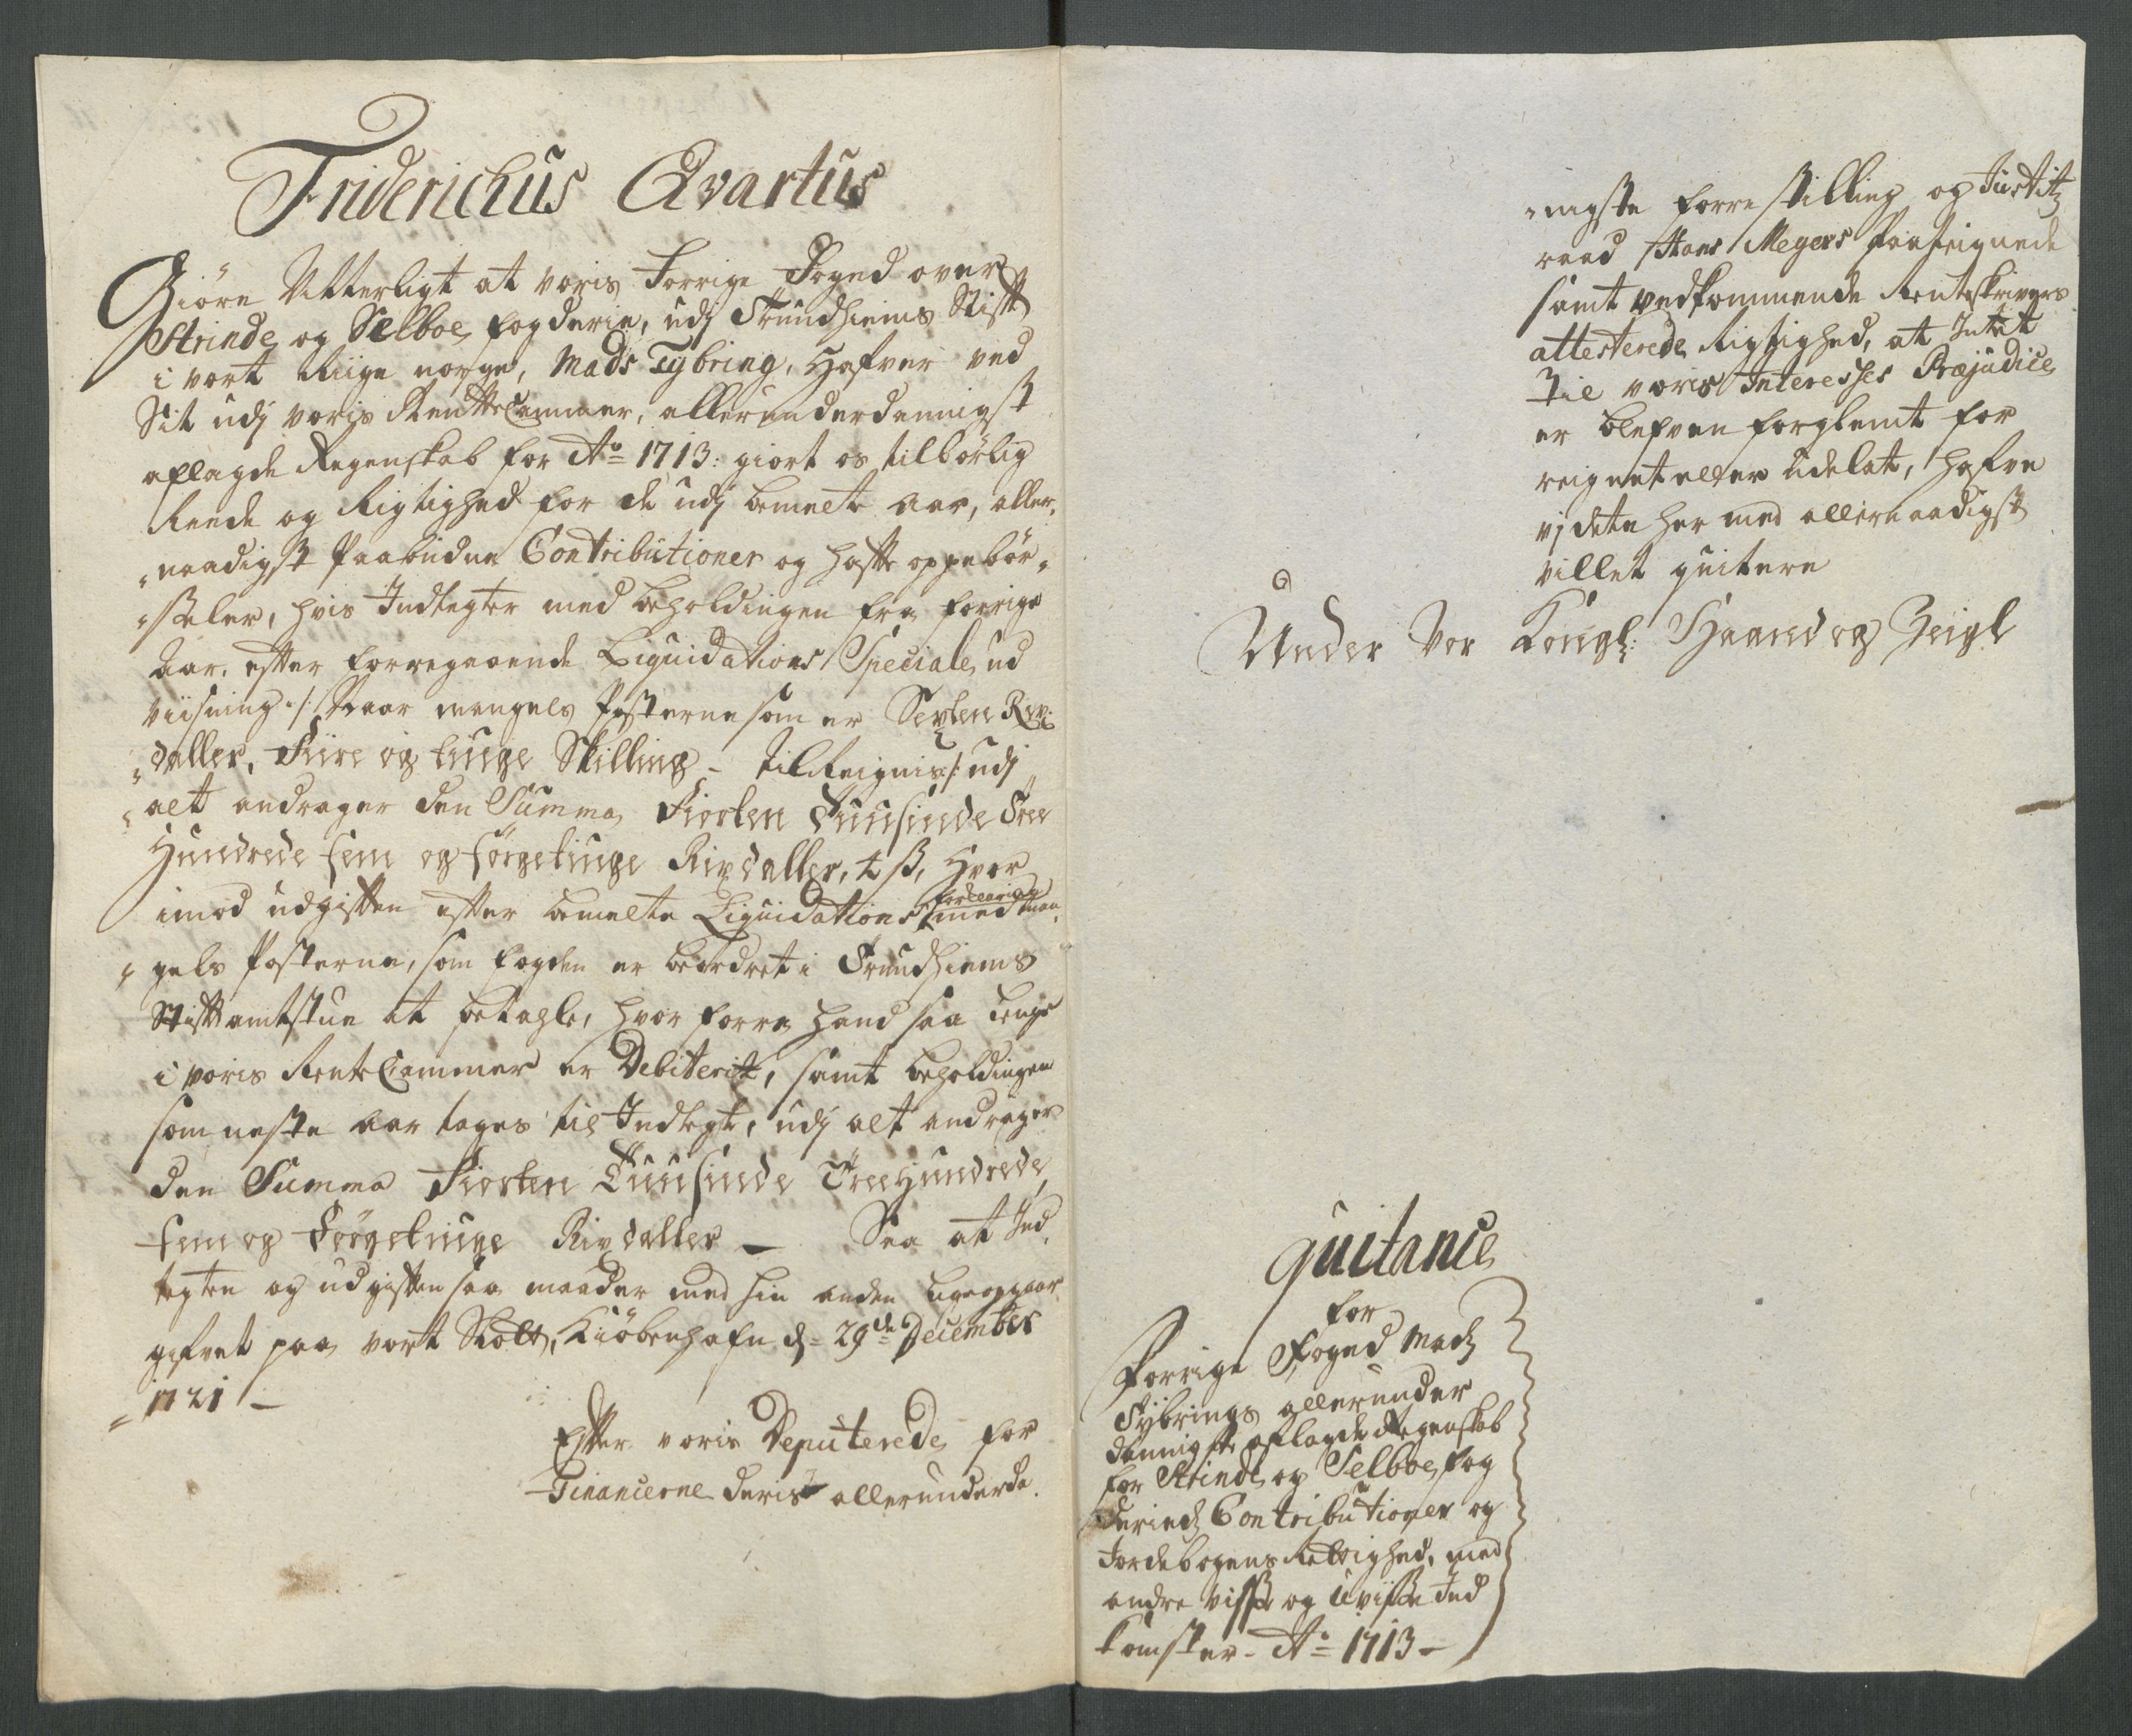 Friderichus Qvartus
Giöre Vitterligt at voris Forrige Foged over
Strinde og Selboe fogderie, udj Trundhiems Stift
i vort Riige norge, Mads Tybring, hafver ved
Sit udj voris RentteCammer, allerunderdannigst
aflagde Regenskab for Ao 1713: giort os tilbørlig
Reede og Rigtighed for de udj bemelte Aar, aller,,
,,naadigst Paabudne Contributioner og hafte oppebör,,
,,sseler, hvis Indtegter med beholdingen fra forrige
Aar, efter forregaaende Liquidations Speciale ud
viisning /: Naar mangels Posterne som er Sexten Rix
,,daller, Fiire og tiuge Skilling – tilReignis :/ udj
,,alt andrager den Summa Fiorten Tuusinde Tree
Hundrede fem og förgetiuge Rixdaller, 4 ß, Hvor
imod udgiften efter bemelte Liquidation med man,,
,,gels Posterne, som fogden er beordret i Trundhiems
Stiftamtstue at betahle, hvor forre hand saa lenge
i voris RenteCammer er Debiterit, samt beholdingen
som neste Aar tages til Indtegt, udj alt andrager
den Summa Fiorten Tuusinde Treehundrede,
fem og Förgetiuge Rixdaller – Saa at Ind,,
tegten og udgiften saa maader med hin anden ligeopgaar
gifvet paa vort Slott, Kiöbenhafn d. 29de December
1721 –
Efter voris Deputerede for
Financerne deris allerunderda,,
,,nigste forrestilling og Justitz
raad Hans Meyers Paateignede
samt vedkommende Renteskrivers
attesterede Rigtighed, at Intet
til voris Interesses Præjudice
er blefven forglemt for
reignet eller udelat, hafve
vj dete her med allernaadigst
villet quitere
Under Vor Kongl: Haand og Zeigl
Quitance
for
Forrige Foged Mads
Tybrings allerunder
dannigste aflagde Regenskab
for Strinde og Selboe fog
deried Contributioner og
Jordebogens Rettighed, med
andre visse og uvisse Ind
komster – Ao 1713 –